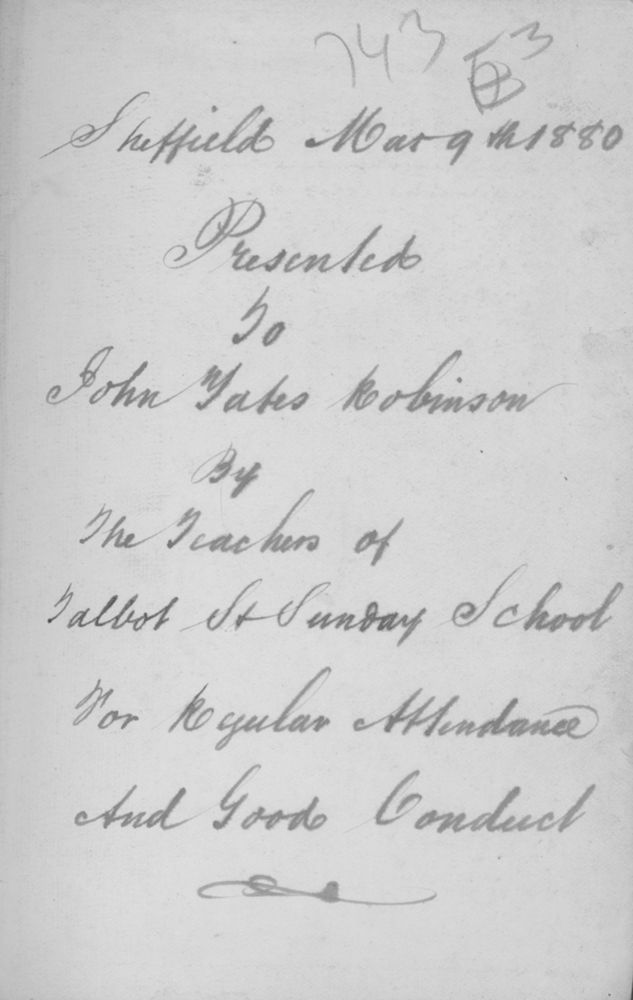 743
Sheffield Mar 9th 1880
Presented
To
John Yates Robinson
By
The Teachers of
Talbot St Sunday School
For Regular Attendance
And Good Conduct